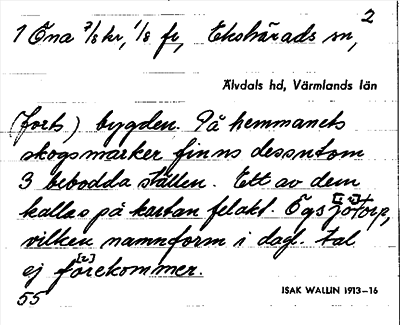 2
1 Öna 7/8 kr, 1/8 fr, Ekshärads sn,
Älvdals hd, Värmlands län
(forts) bygden. På hemmanets
skogsmarker finns dessutom
3 bebodda ställen. Ett av dem
kallas på kartan felakt. Ögsjötorp,
vilken namnform i dag. tal
ej förekommer.
55
ISAK WALLIN 1913–16